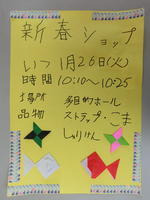 新春ショップ
いつ 1月26日(火)
時間 10:10~10:25
場所 多目的ホール
品物 ストラップ・こま
しゅりけん